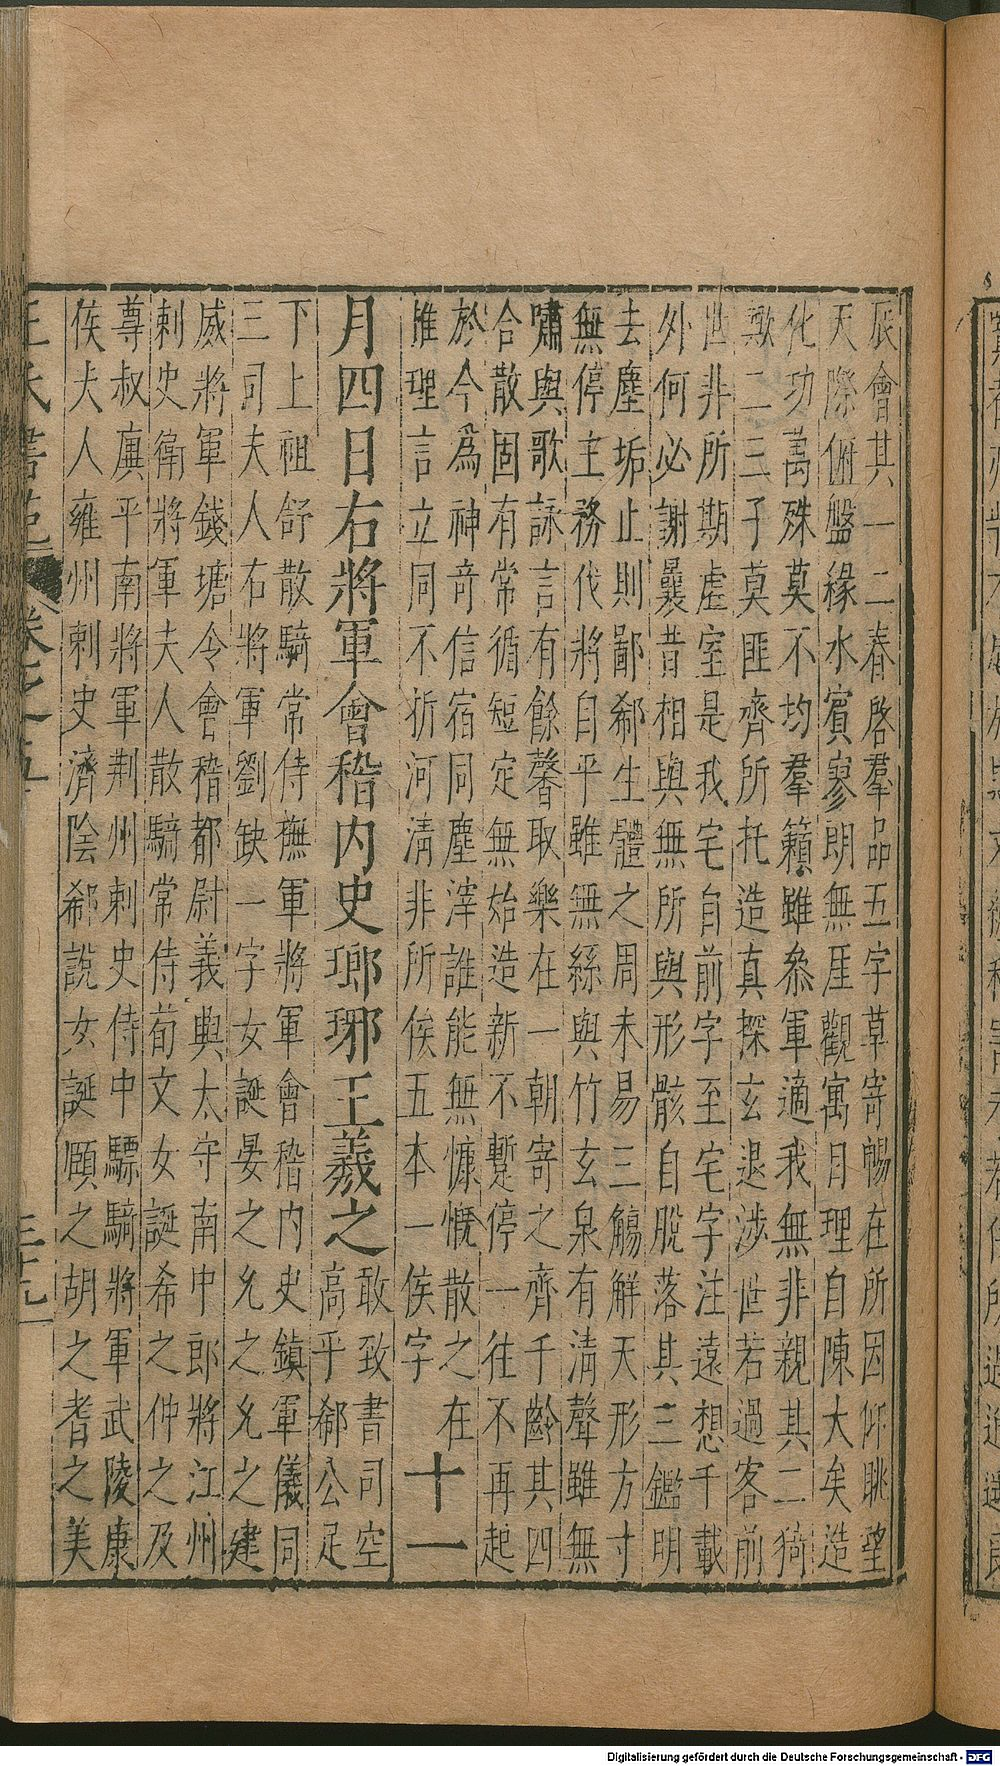 辰會其一二春啓羣品五字草寄暢在所因仰眺望
天際俯盤緣水濱寥朗無厓觀寓目理自陳大矣造
化功萬殊莫不均羣籟雖叅軍適我無非親其二猗
歟二三子莫匪齊所托造真探玄退涉世若過客前
世非所期虛室是我宅自前字至宅字注遠想千載
外何必謝曩昔相與無所與形骸自脫落其三鑑明
去塵垢止則鄙郗生體之周未易三觴解天形方寸
無停主務伐將自平雖無絲與竹玄泉有清聲雖無
嘯與歌詠言有餘馨取樂在一朝寄之齊千齡其四
合散固有常循短定無始造新不蹔停一往不再起
於今為神奇信宿同塵滓誰能無慷慨散之在
推理言立同不折河清非所俟五本一俟字 十一
月四日右將軍會稽内史瑯琊王羲之 敢致書司空
高平郗公足
下上祖舒散騎常侍撫軍將軍會稽内史鎮軍儀同
三司夫人右將軍劉缺一字女誕晏之允之允之建
威將軍錢塘令會稽都尉義興太守南中郎將江州
刺史衛將軍夫人散騎常侍荀文女誕希之仲之及
尊叔廙平南將軍荆州刺史侍中驃騎將軍武陵康
侯夫人雍州刺史濟陰郗說女誕頤之胡之耆之美
王氏書苑 卷之五 三十九
Digitalisierung gefördert durch die Deutsche Forschungsgemeinschaft - DFG